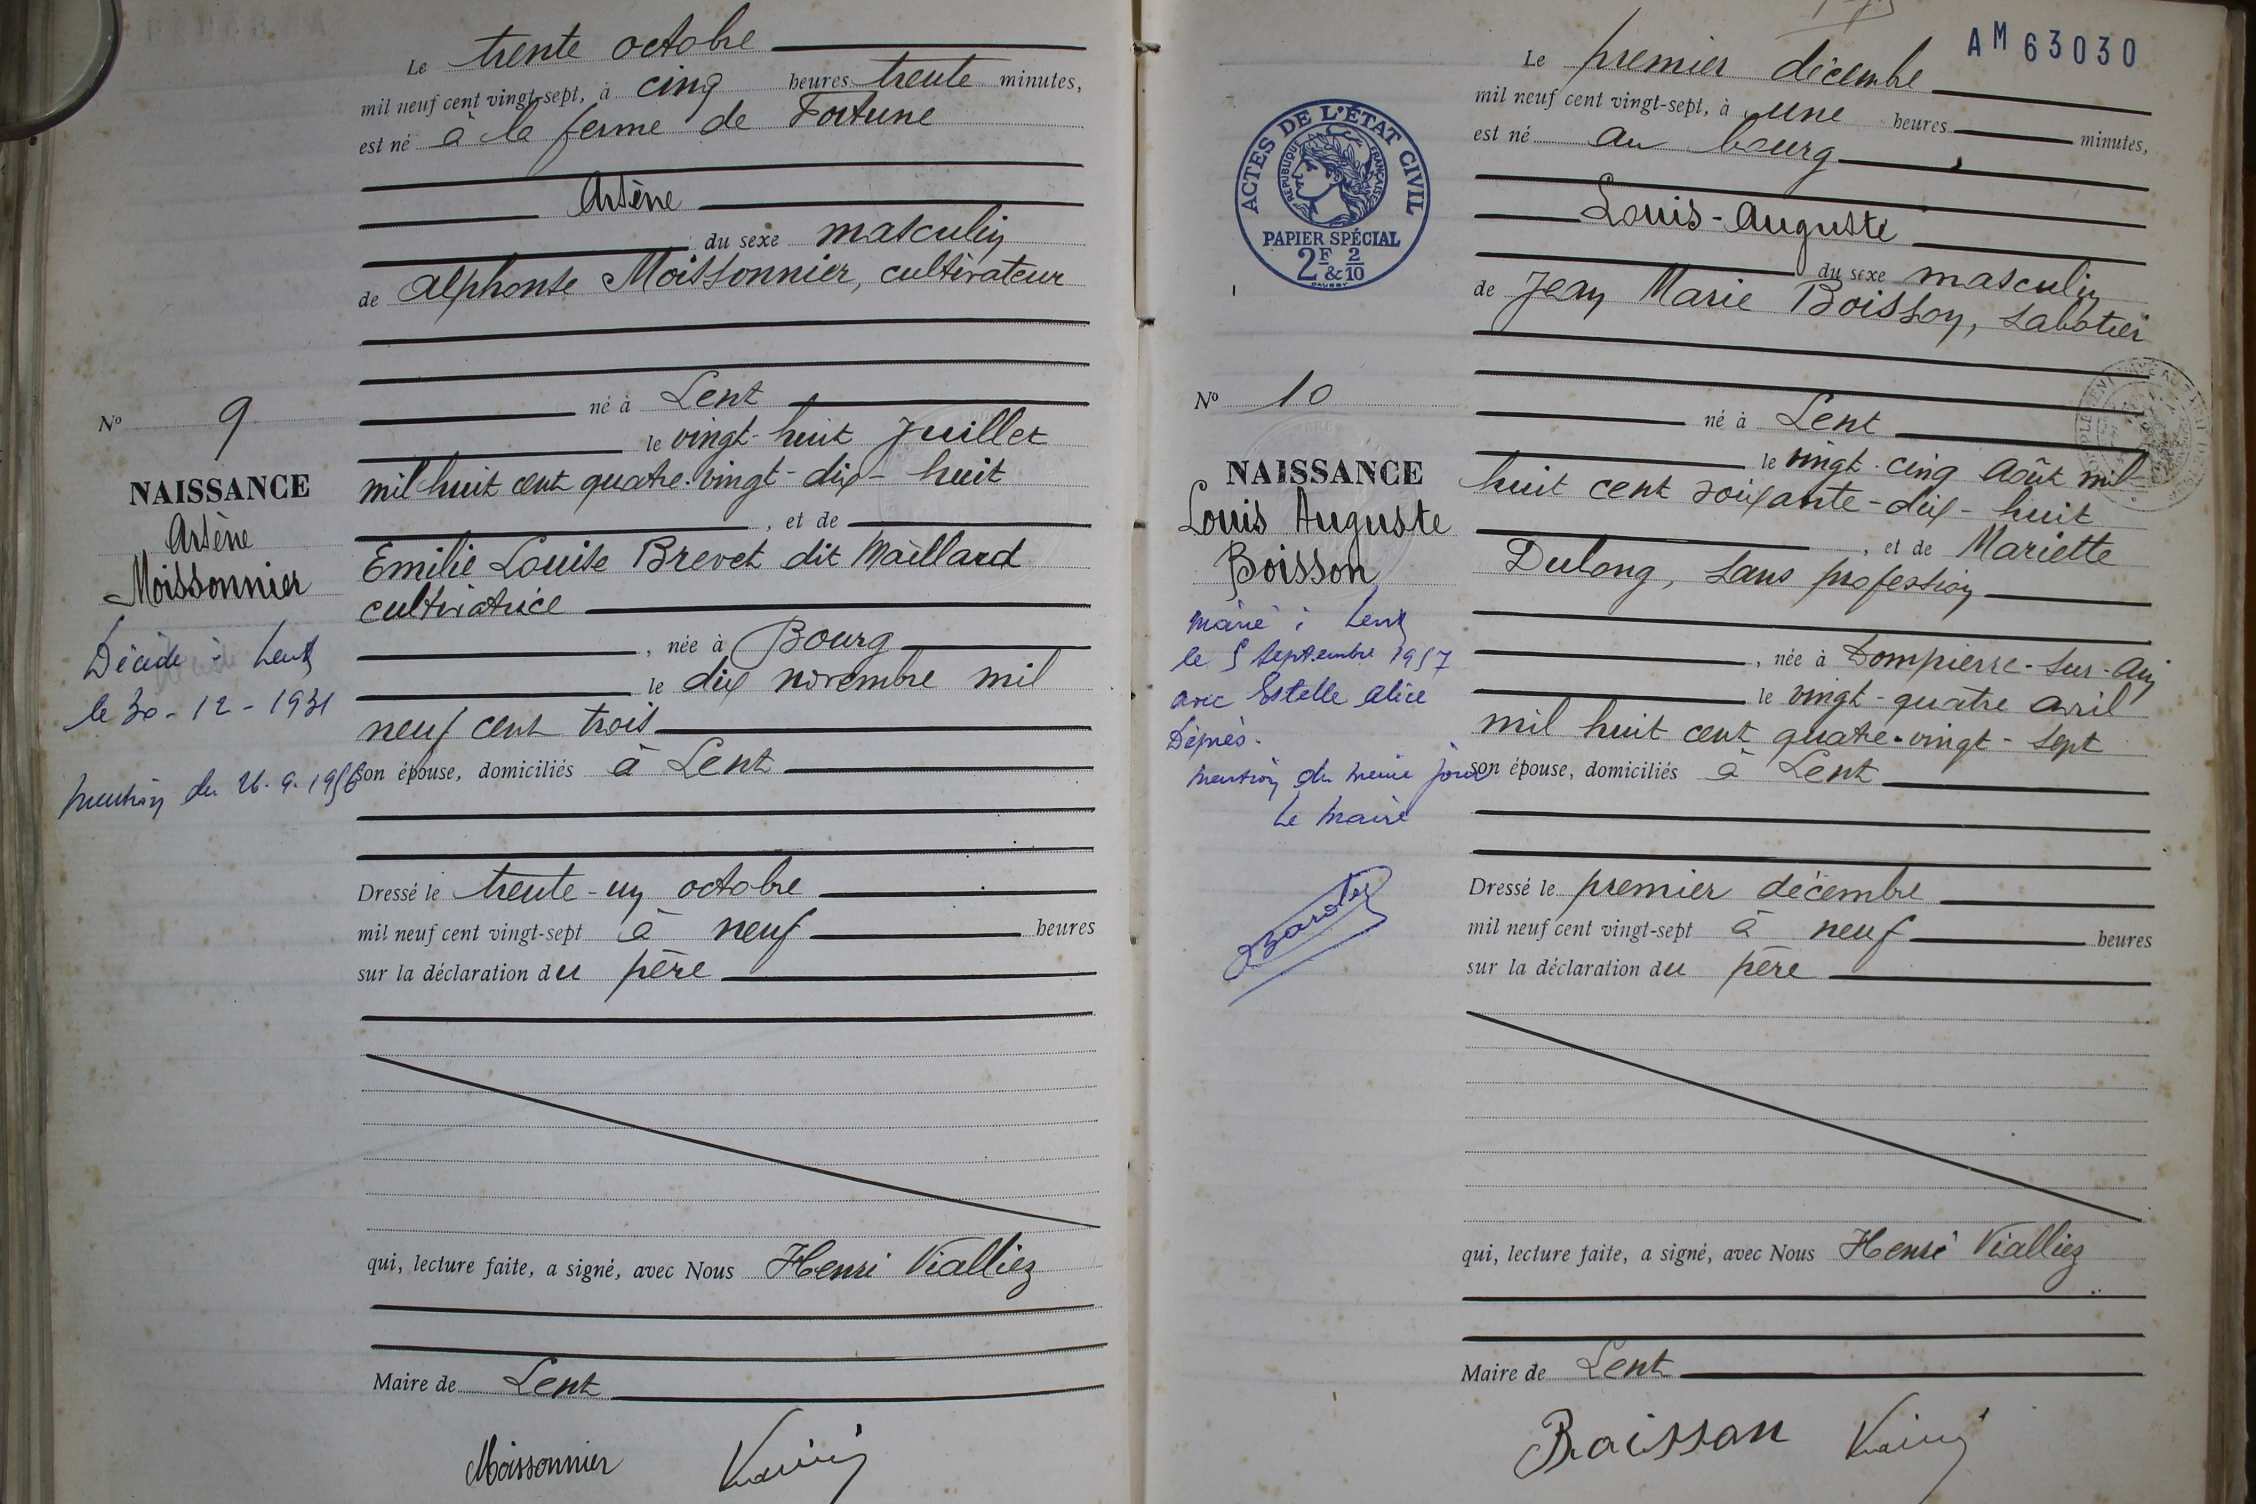 Le trente octobre
mil neuf cent vingt-sept, à cinq heures trente minutes,
est né à la ferme de Fortune
Arsène
du sexe masculin
de Alphonse Moissonnier, cultivateur
né à Lent
le vingt-huit Juillet
mil huit cent quatre-vingt-dix-huit
, et de
Emilie Louise Brevet dit Maillard
cultivatrice
, née à Bourg
le dix novembre mil
neuf cent trois
son épouse, domiciliés à Lent
Dressé le trente-un octobre
mil neuf cent vingt-sept à neuf heures
sur la déclaration du père
qui, lecture faite, a signé, avec Nous Henri Vialliez
Maire de Lent
Moissonnier
No 9
NAISSANCE
Arsène
Moissonnier
Décédé à Lent
le 30-12-1931
mention du 26.9.1956
AM 63030
Le premier décembre
mil neuf cent vingt-sept, à une heures minutes,
est né au bourg
Louis-Auguste
du sexe masculin
de Jean Marie Boisson, sabotier
né à Lent
le vingt-cinq Août mil
huit cent soixante-dix-huit
, et de Mariette
Dulong, sans profession
, née à Dompierre-sur-Ain
le vingt-quatre avril
mil huit cent quatre-vingt-sept
son épouse, domiciliés à Lent
Dressé le premier décembre
mil neuf cent vingt-sept à neuf heures
sur la déclaration du père
qui, lecture faite, a signé, avec Nous Henri Vialliez
Maire de Lent
Boisson
ACTES DE L'ÉTAT CIVIL
RÉPUBLIQUE FRANÇAISE
PAPIER SPÉCIAL
2F & 2/10
No 10
NAISSANCE
Louis Auguste
Boisson
Marié à Lent
le 5 septembre 1957
avec Estelle Alice
mention du même jour
Le Maire